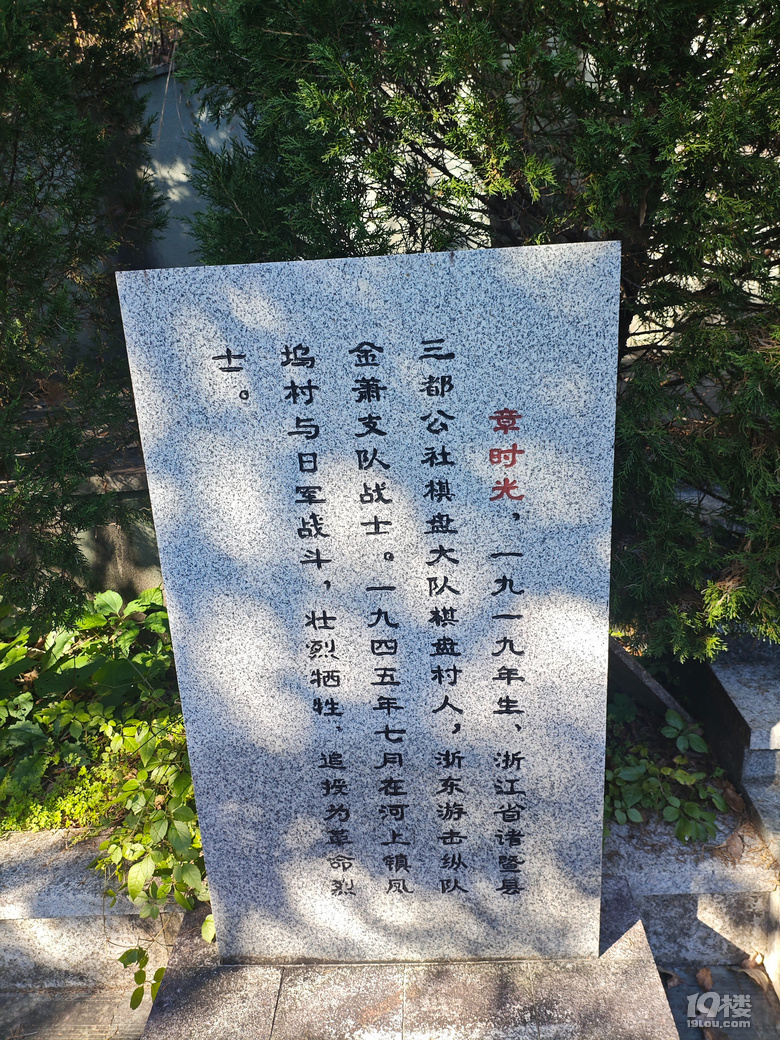 章时光，一九一九年生、浙江省诸暨县
三都公社棋盘大队棋盘村人，浙东游击纵队
金萧支队战士。一九四五年七月在河上镇凤
坞村与日军战斗，壮烈牺牲、追授为革命烈
士。
19楼
19lou.com